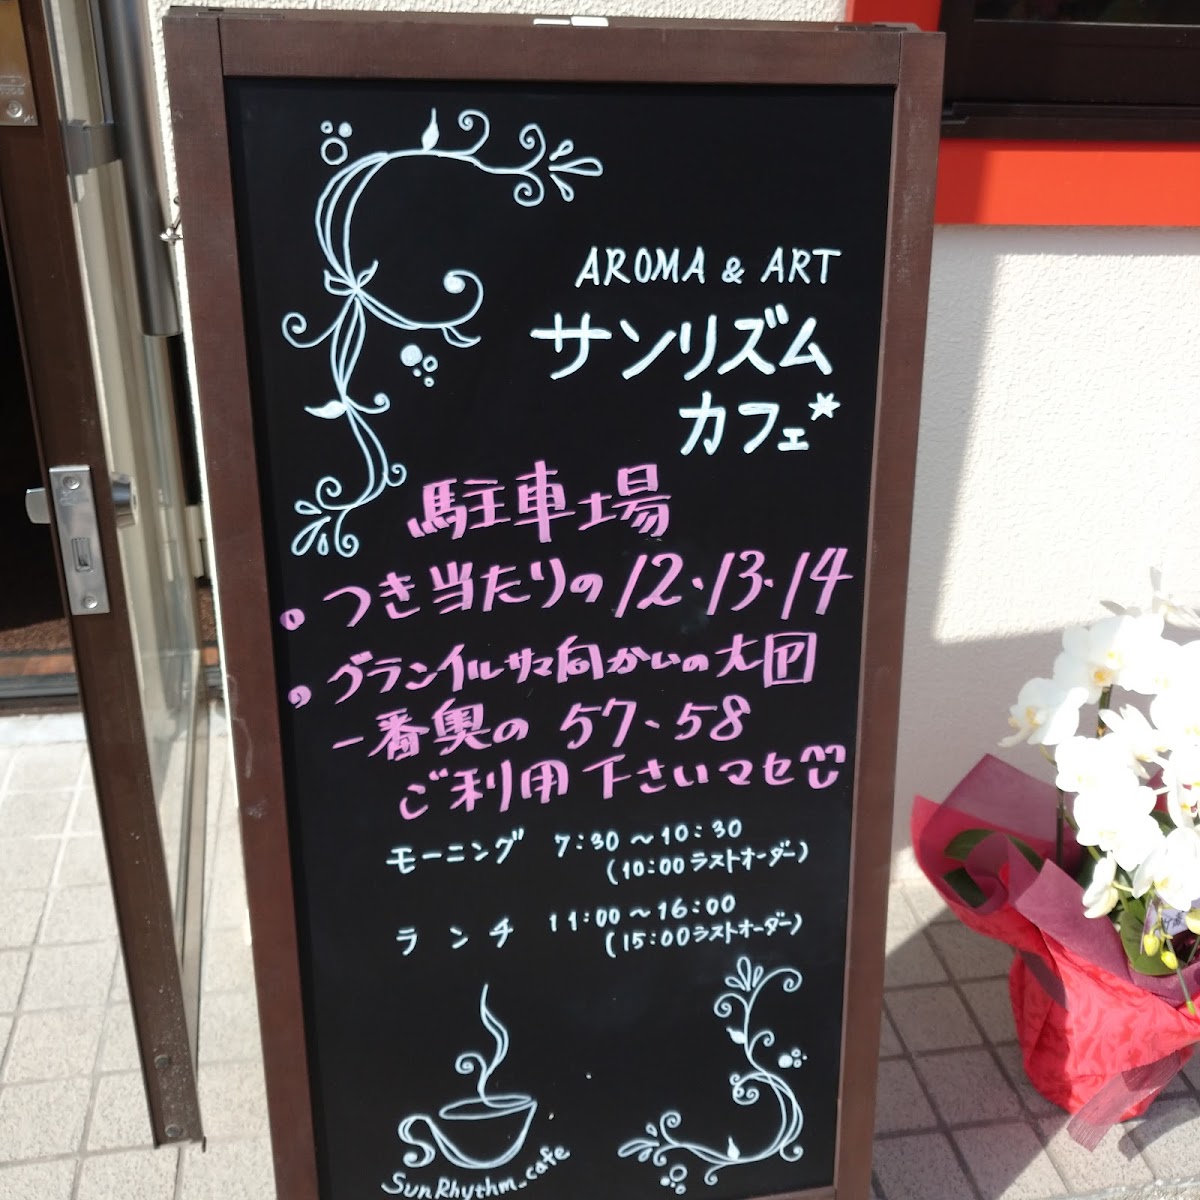 AROMA & ART
サンリズム
カフェ*
駐車場
• つき当たりの12・13・14
• グランイルサマ向かいの大回
一番奥の 57、58
ご利用下さいマセ
モーニング 7:30〜10:30
(10:00ラストオーダー)
ランチ 11:00〜16:00
(15:00ラストオーダー)
SunRhythm_cafe